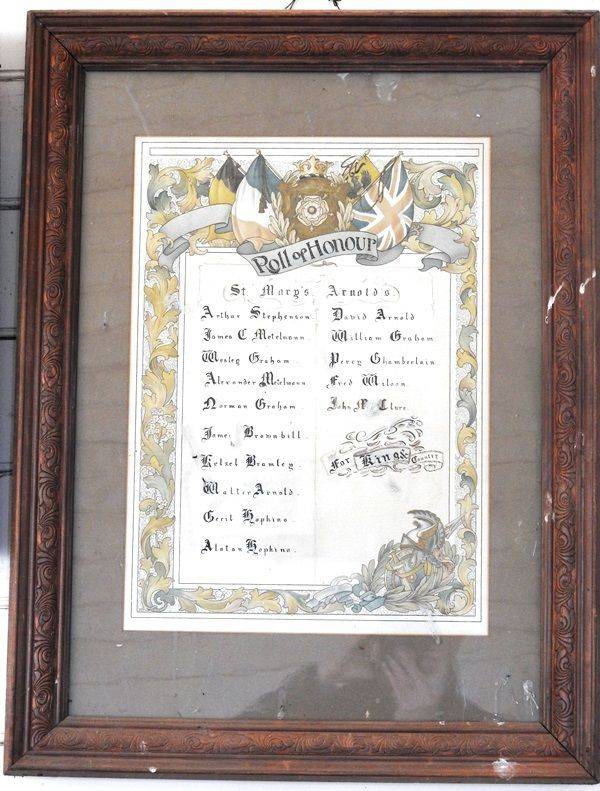 Roll of Honour
St Mary's Arnold's
Arthur Stephenson
James C Metelmann
Wesley Graham
Alexander Metelmann
Norman Graham
James Brownbill
Ketzel Bramley
Walter Arnold
Cecil Hopkins
Alston Hopkins
David Arnold
William Graham
Percy Chamberlain
Fred Wilson
John Mc Clure
For King & Country